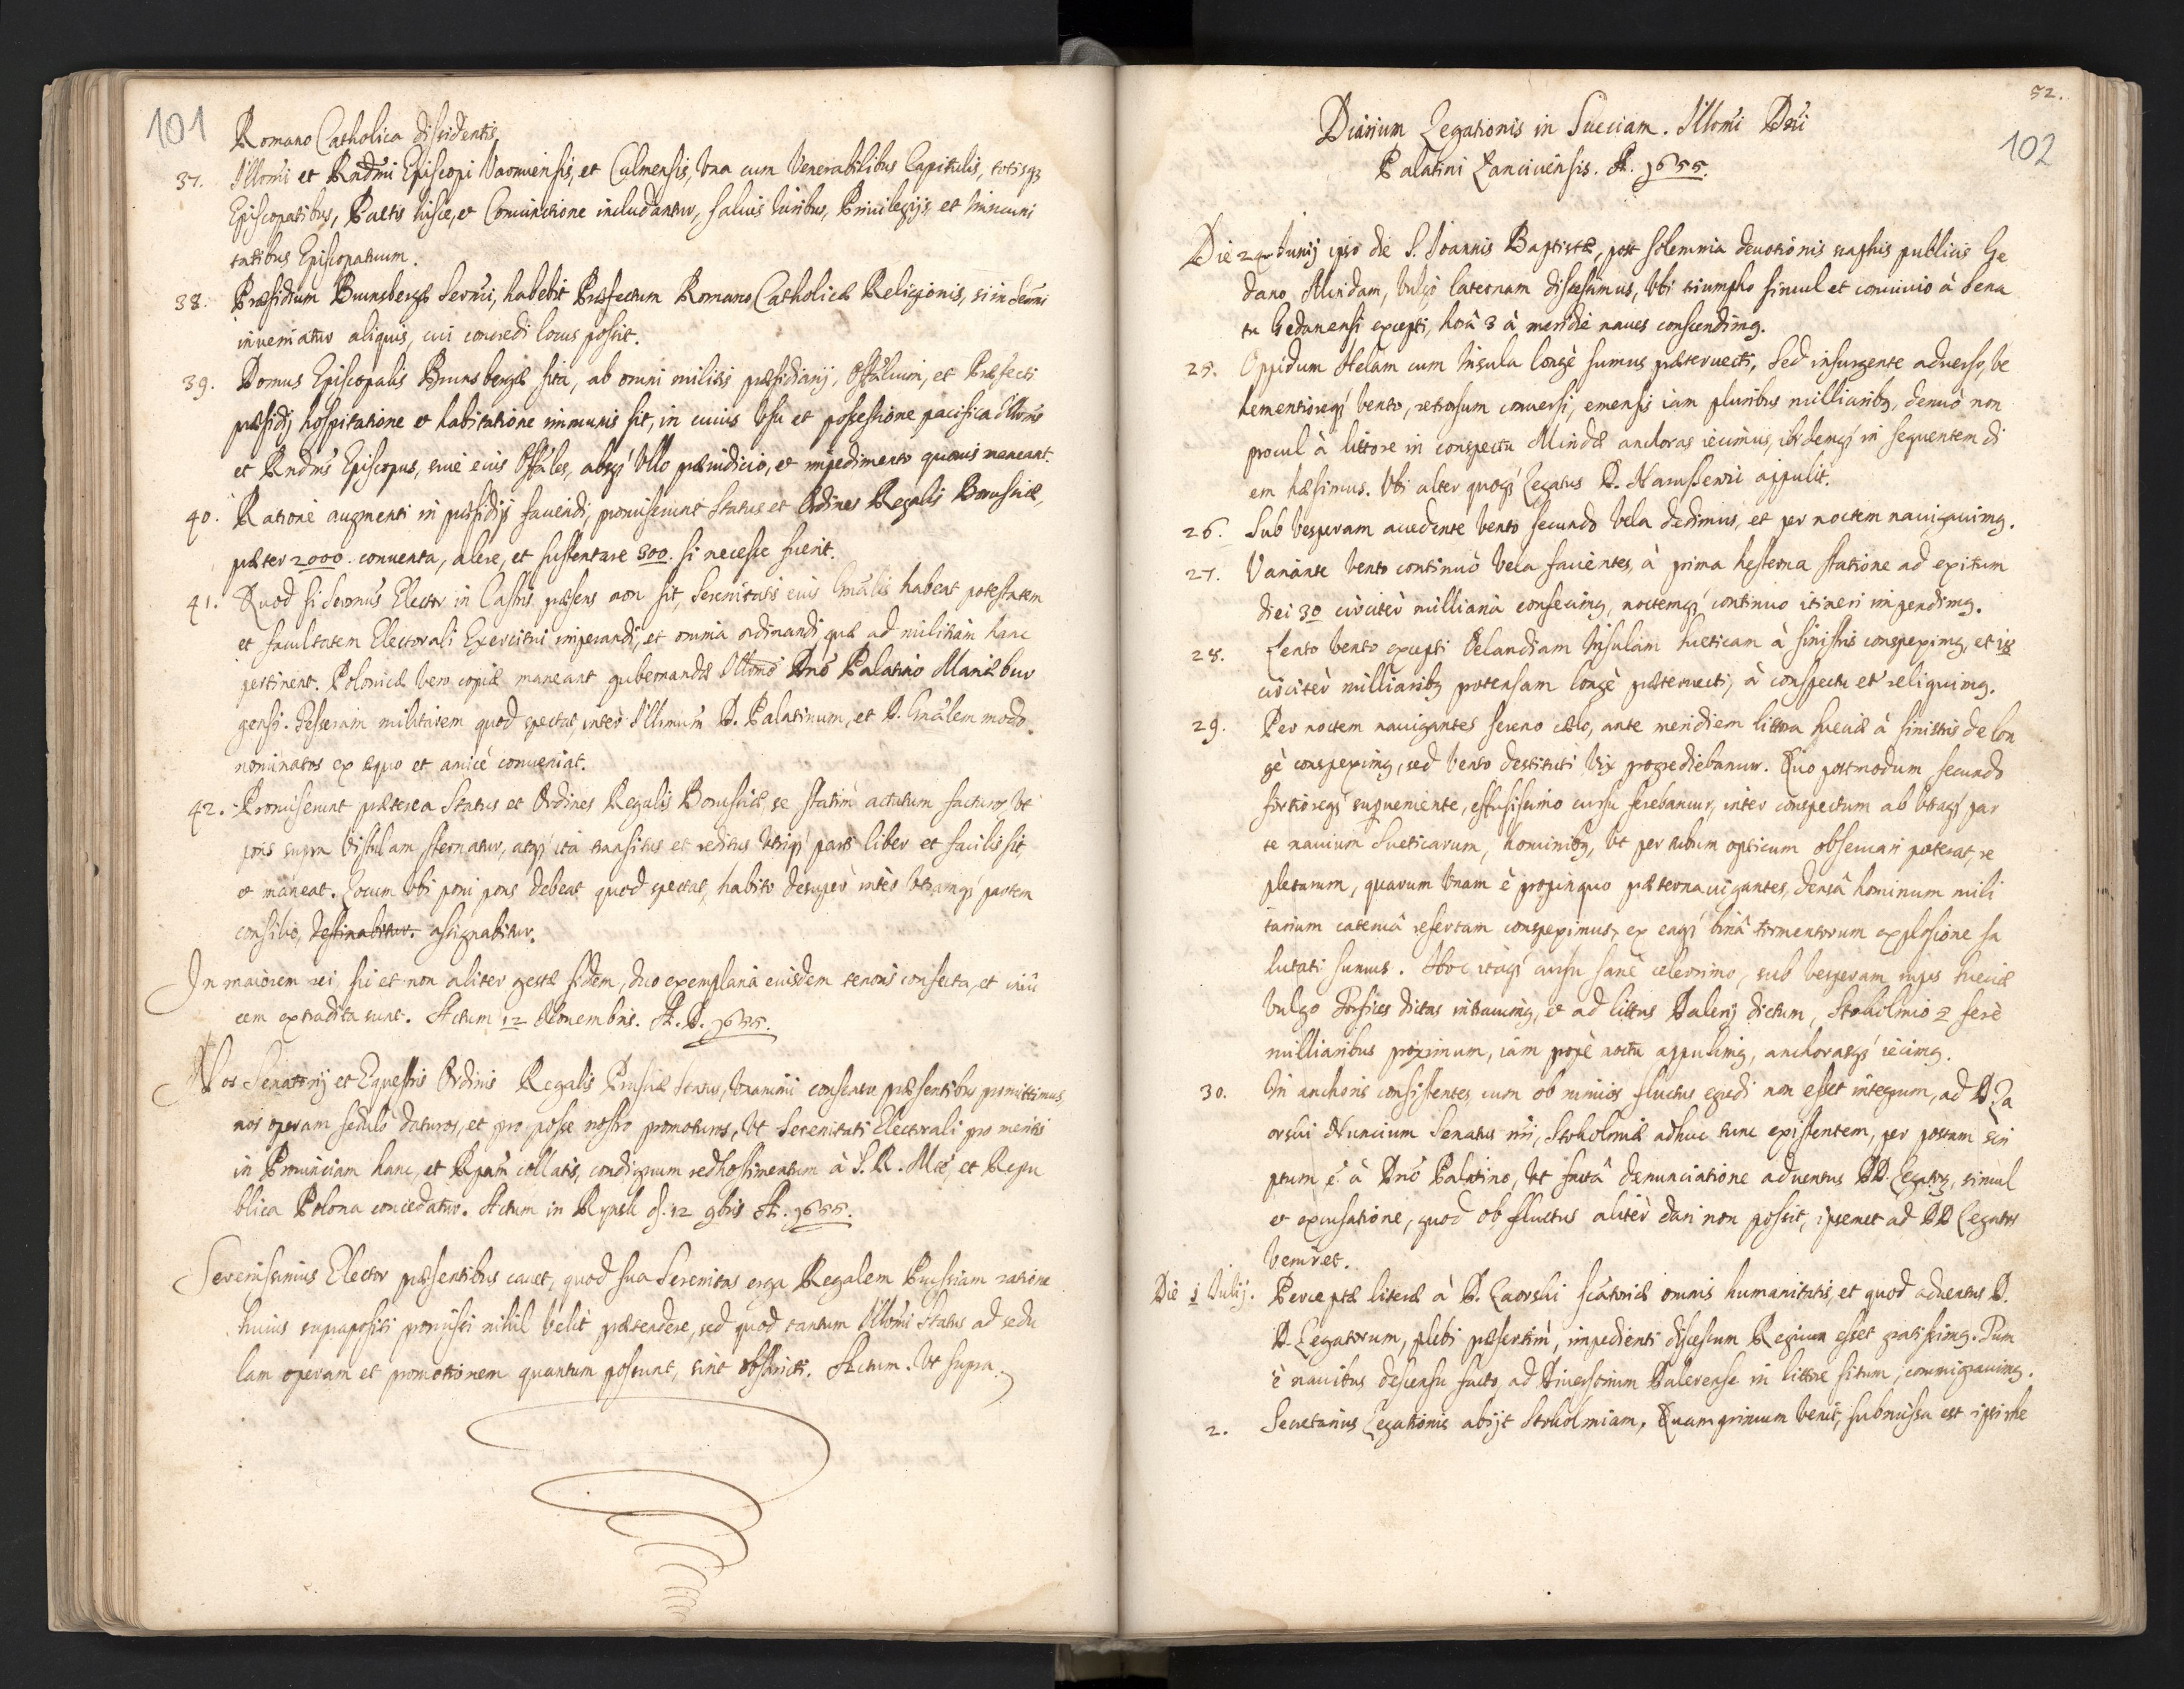 101
Romano Catholica dissidentis.
37. Illmi et Rndmi Episcopi Varmiensis, et Culmensis, Una cum Venerabilibus Capitulis, totisq3
Episcopatibus, Pactis hisce, et Coniunctione includantur, saluis Iuribus, Priuilegijs, et Immuni
tatibus Episcopatuum.
38. Præsidium Brunsbergæ Sernui, habebit Præfectum Romano Catholicæ Religionis, si in
inueniatur aliquis, cui concredi locus possit.
39. Domus Episcopalis Brunsbergæ sita, ab omni militis præsidiarij, Offalium, et Præfecti
præsidij hospitatione et habitatione immunis sit, in cuius Usu et possessione pacifica Illmus
et Rndus Episcopus, siue eius Offales, absq3 Ullo præiudicio, et impedimento quouis maneant.
40. Ratione augmenti in præsidijs faciendi, promiserunt Status et Ordines Regalis Borussiæ,
præter 2000. conuenta, alere, et sustentare 500. si necesse fuerit.
41. Quod si Serenmus Elector in Castris præsens non sit, Serenitatis eius Gnalis habeat potestatem
et facultatem Electorali Exercitui imperandi, et omnia ordinandi quæ ad militiam hanc
pertinent. Polonicæ Vero copiæ maneant gubernandæ Illmo Dno Palatino Mariæbur
gensi. Tesseram militarem quod spectat, inter Illmum D. Palatinum, et D. Gnalem modo
nominatos ex æquo et amicè conueniat.
42. Promiserunt præterea Status et Ordines Regalis Borussiæ, se statim actutum facturos, Ut
pons supra Vistulam sternatur, atq3 ita transitus et reditus Utriq3 parti liber et facilis sit,
et maneat. Locum Ubi poni pons debeat quod spectat, habito desuper inter Utramq3 partem
consilio, destinabitur. assignabitur.
In maiorem rei, sic et non aliter gestæ fidem, duo exemplaria eiusdem tenoris confecta, et inui
cem extradita sunt. Actum 12 Nouembris. A. D. 1655.
Nos Senatorij et Equestris Ordinis Regalis Prussiæ Status, Unanimi consensu præsentibus promittimus,
nos operam sedulò daturos, et pro posse nostro promoturos, Ut Serenitati Electorali pro meritis
in Prouinciam hanc, et Rpam collatis, condignum redhostimentum à S. R. Mte, et Repu
blica Polona concedatur. Actum in Rynsk d. 12 9bris A. 1655.
Serenissimus Elector præsentibus cauet, quod sua Serenitas erga Regalem Prussiam ratione
huius suprapositi promissi nihil Velit prætendere, sed quod tantum Illmi Status ad sedu
lam operam et promotionem quantum possunt, sint obstricti. Actum. Ut supra.
52.
102
Diarium Legationis in Sueciam. Illmi Dni
Palatini Lanciciensis. A. 1655.
Die 24 Iunij ipso die S. Ioannis Baptistæ, post solemnia deuotionis naphis publicis Ge
dano Mindam, Vulgò laternam discessimus, Ubi triumpho simul et conuiuio à Sena
tu Gedanensi excepti, horâ 3 à meridie naues conscendimg.
25. Oppidum Helam cum Insula longè sumus præteruecti, Sed insurgente aduerso, Ve
hementioreq3 Vento, retrorsum conuersi, emensis iam pluribus milliaribg, denuò non
procul à littore in conspectu Mindæ anchoras iecimus, ibidemq3 in sequentem di
em hæsimus. Ubi alter quoq3 Legatus D. Naruszewic appulit.
26. Sub Vesperam accedente Vento secundo Vela dedimus, et per noctem nauigauimg.
27. Variante Vento continuò Vela facientes, à prima hesterna statione ad exitum
diei 30 circiter milliaria confecimg, noctemq3 continuo itineri impendimg.
28. Lento Vento excepti Oelandiam Insulam sueticam à sinistris conspeximg, et 18
circiter milliaribg protensam longè præteruecti, à conspectu et reliquimg.
29. Per noctem nauigantes sereno cælo, ante meridiem littora sueciæ à sinistris de lon
gè conspeximg, sed Vento destituti Vix progrediebamur. Quo postmodum secundo
fortioreq3 superueniente, effusissimo cursu ferebamur, inter conspectum ab Utraq3 par
te nauium Sueticarum, hominibg, Ut per tubum opticum obseruari poterat, re
pletarum, quarum Unam è propinquo præternauigantes, densâ hominum mili
tarium cateruâ refertam conspeximus, ex eaq3 binâ tormentorum explosione sa
lutati sumus. Hoc itaq3 cursu sanè celerrimo, sub Vesperam rupes sueciæ
Vulgo dictas intrauimg, et ad littus Dalerij dictum, Stokolmio 9 ferè
milliaribus proximum, iam propè noctu appulimg, anchorasq3 iecimg.
30. In anchoris consistentes, cum ob nimios fluctus egredi non esset integrum, ad D. Za
orski Nuncium Senatus Stokolmiæ adhuc tunc existentem, per postam scri
ptum e à Dno Palatino, Ut factâ denunciatione aduentus DD. Legatorum, simul
et excusatione, quod ob fluctus aliter dari non possit, ipsemet ad DD Legatos
Veniret.
Die 1 Iulij. Perceptæ literæ à D. Zaorski scatoriæ omnis humanitatis, et quod aduentus D.
D. Legatorum, plebi præsertim, impedienti discessum Regium esset gratissimg. Tum
è nauibus descensu facto, ad Diuersorium Dalerense in littore situm, commigrauimg.
2. Secretarius Legationis abijt Stokolmiam, Quamprimum Venit, submissa est ipsi rhe